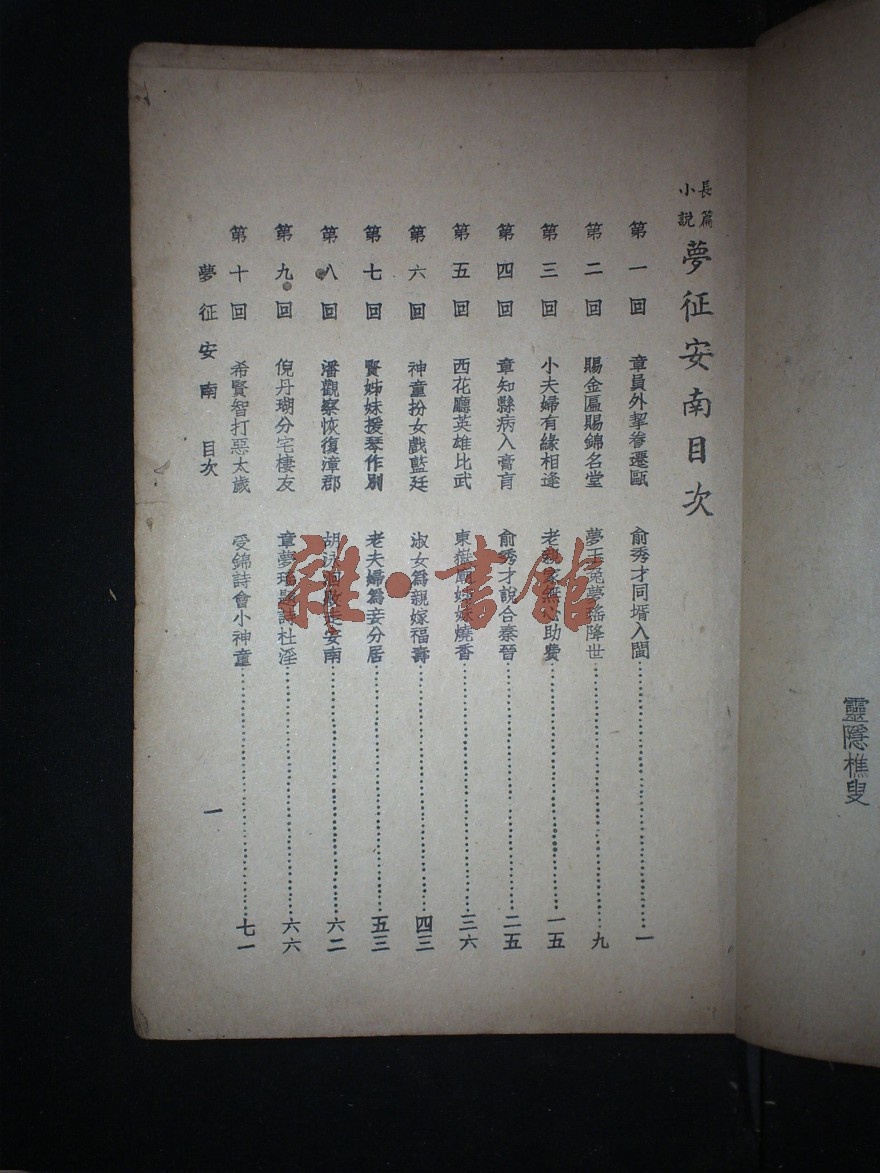 靈隱樵叟
長篇小說 夢征安南目次
第一回 章員外挈眷遷甌 俞秀才同壻入閩 一
第二回 賜金匾賜錦名堂 夢玉兔夢瑤降世 九
第三回 小夫婦有緣相逢 老 助費 一五
第四回 章知縣病入膏肓 俞秀才說合秦晉 二五
第五回 西花廳英雄比武 東嶽廟姊妹燒香 三六
第六回 神童扮女戲藍廷 淑女爲親嫁福壽 四三
第七回 賢姊妹援琴作別 老夫婦爲妾分居 五三
第八回 潘觀察恢復漳郡 胡 安南 六二
第九回 倪丹瑚分宅棲友 章夢瑤題詩杜淫 六六
第十回 希賢智打惡太歲 受錦詩會小神童 七一
夢征安南 目次 一
雜·書館